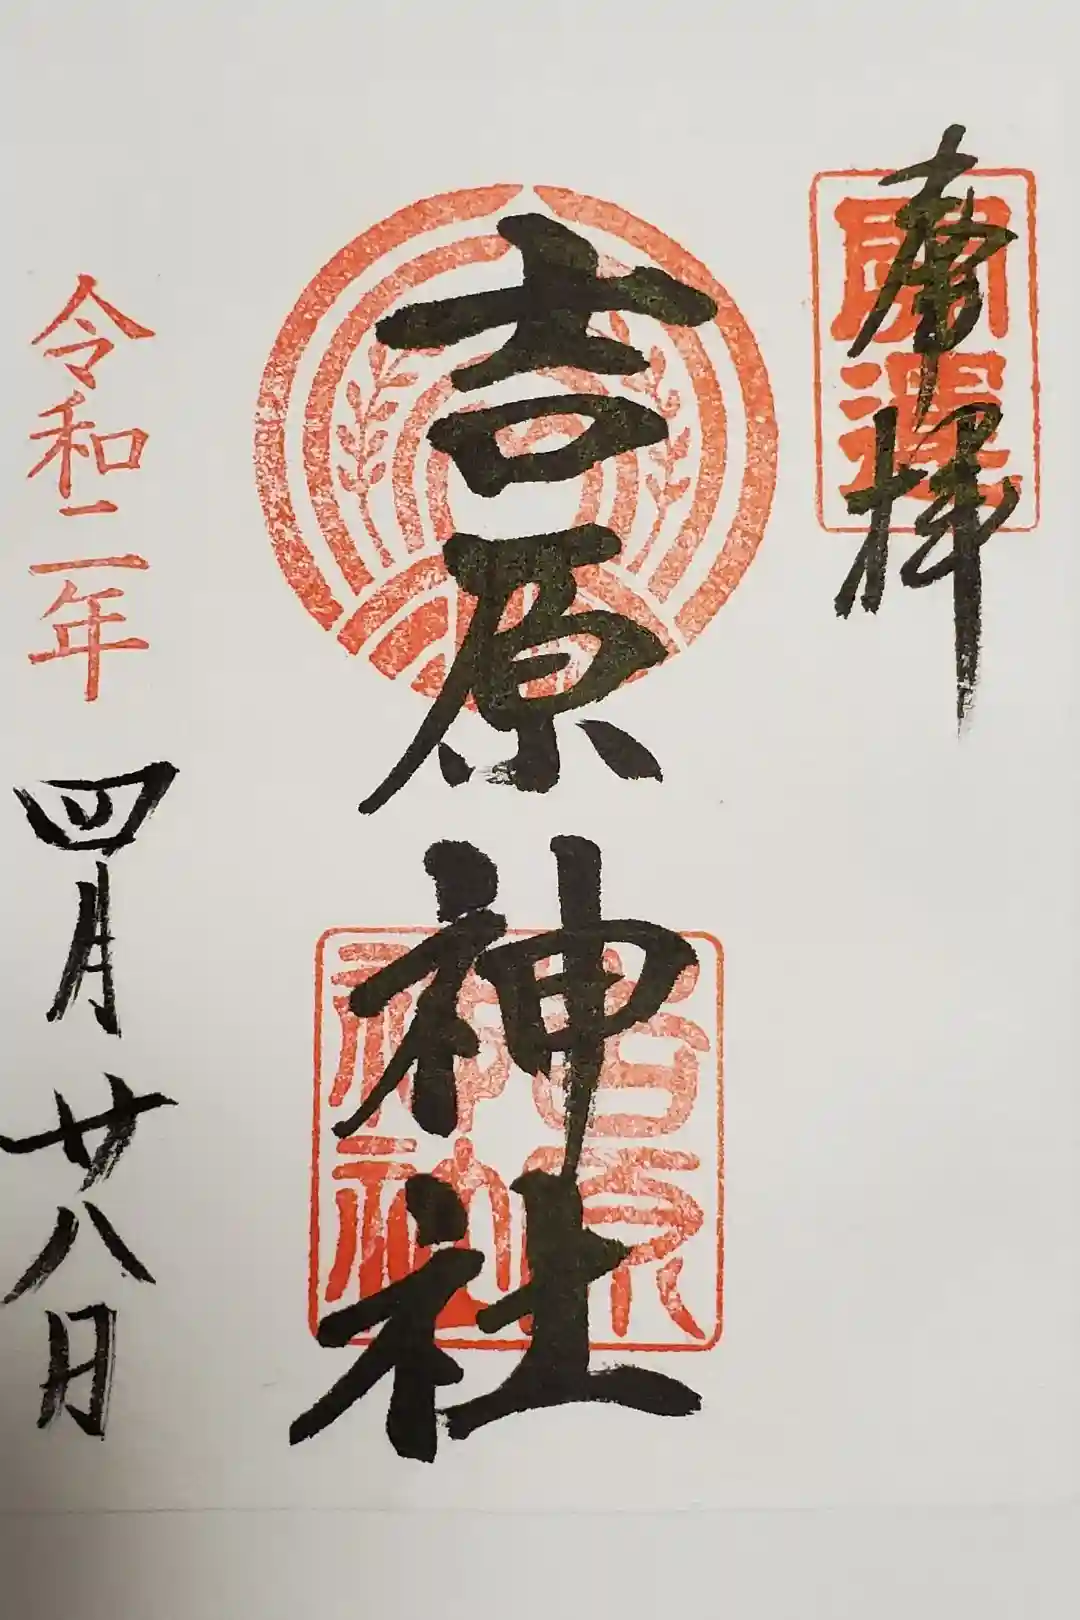 奉拝
開運
吉原神社
吉原神社
令和二年四月廿八日